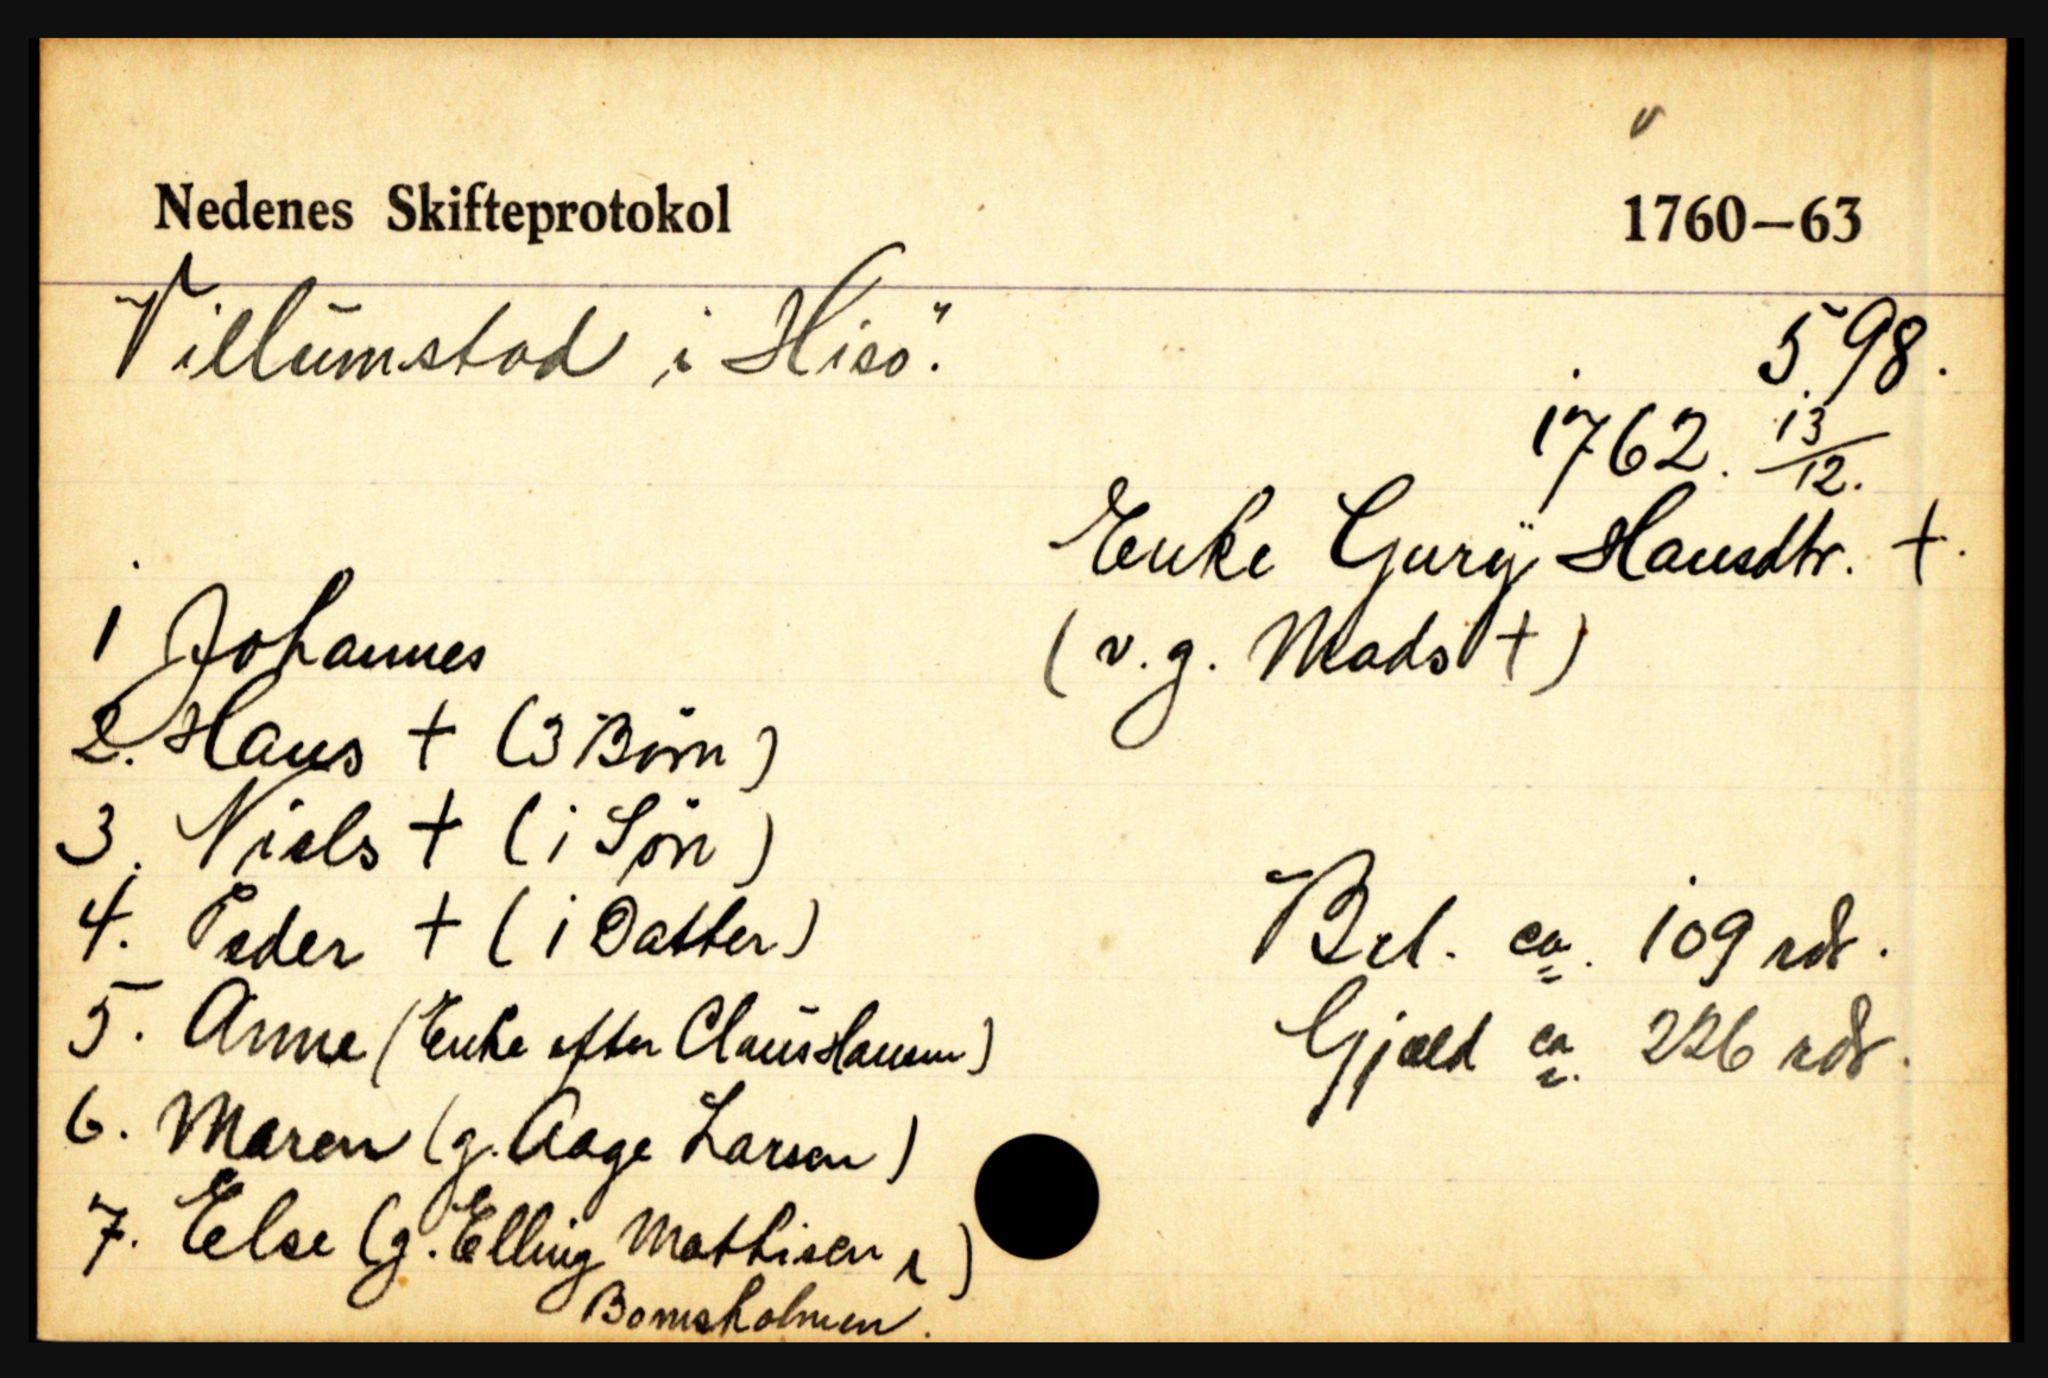 v
Nedenes Skifteprotokol 1760—63
Villumstad i Hisö.
598.
1762. 13/12.
Enke Gurÿ Hansdtr. †.
(v. g. Mads †)
1 Johannes
2. Hans † (3 Börn)
3. Niels † (1 Sön)
4. Peder † (1 Datter)
5. Anne (Enke efter Claus Hansen)
6. Maren (g. Aage Larsen)
7. Else (g. Elling Mathisen i)
Bomsholmen.
Bel. ca. 109 rdr.
Gjæld ca. 226 rdr.